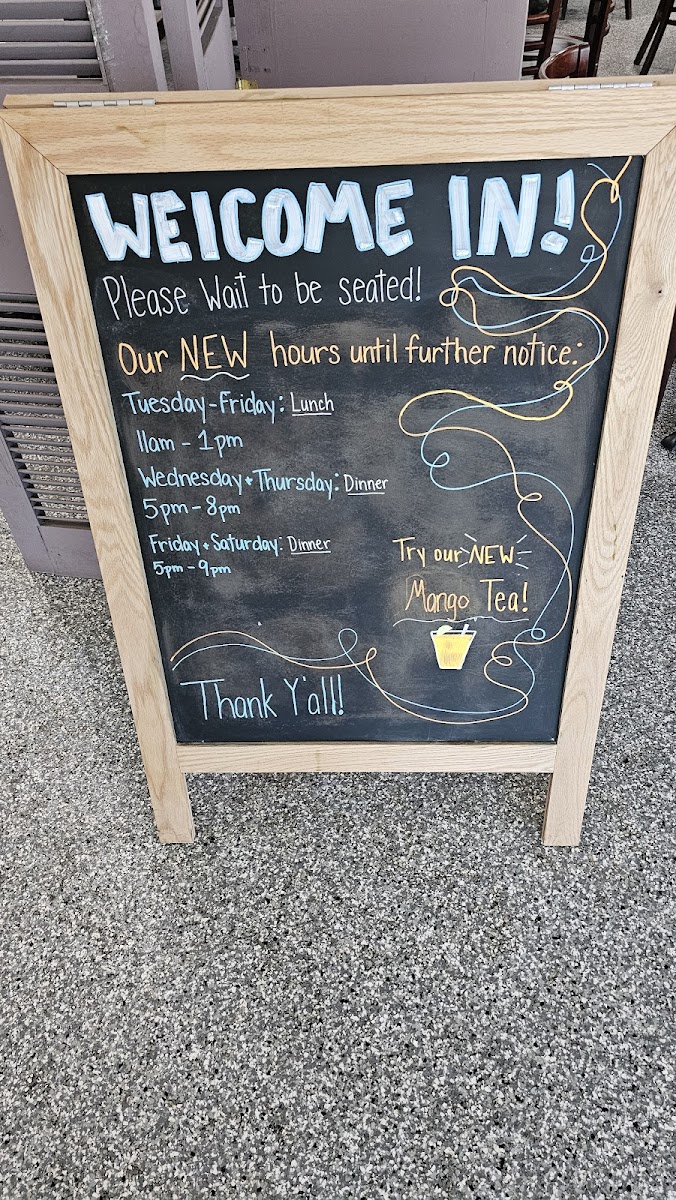 WELCOME IN!
Please Wait to be seated!
Our NEW hours until further notice:
Tuesday-Friday: Lunch
11am - 1pm
Wednesday + Thursday: Dinner
5pm - 8pm
Friday + Saturday: Dinner
5pm - 9pm
Try our NEW
Mango Tea!
Thank Y'all!